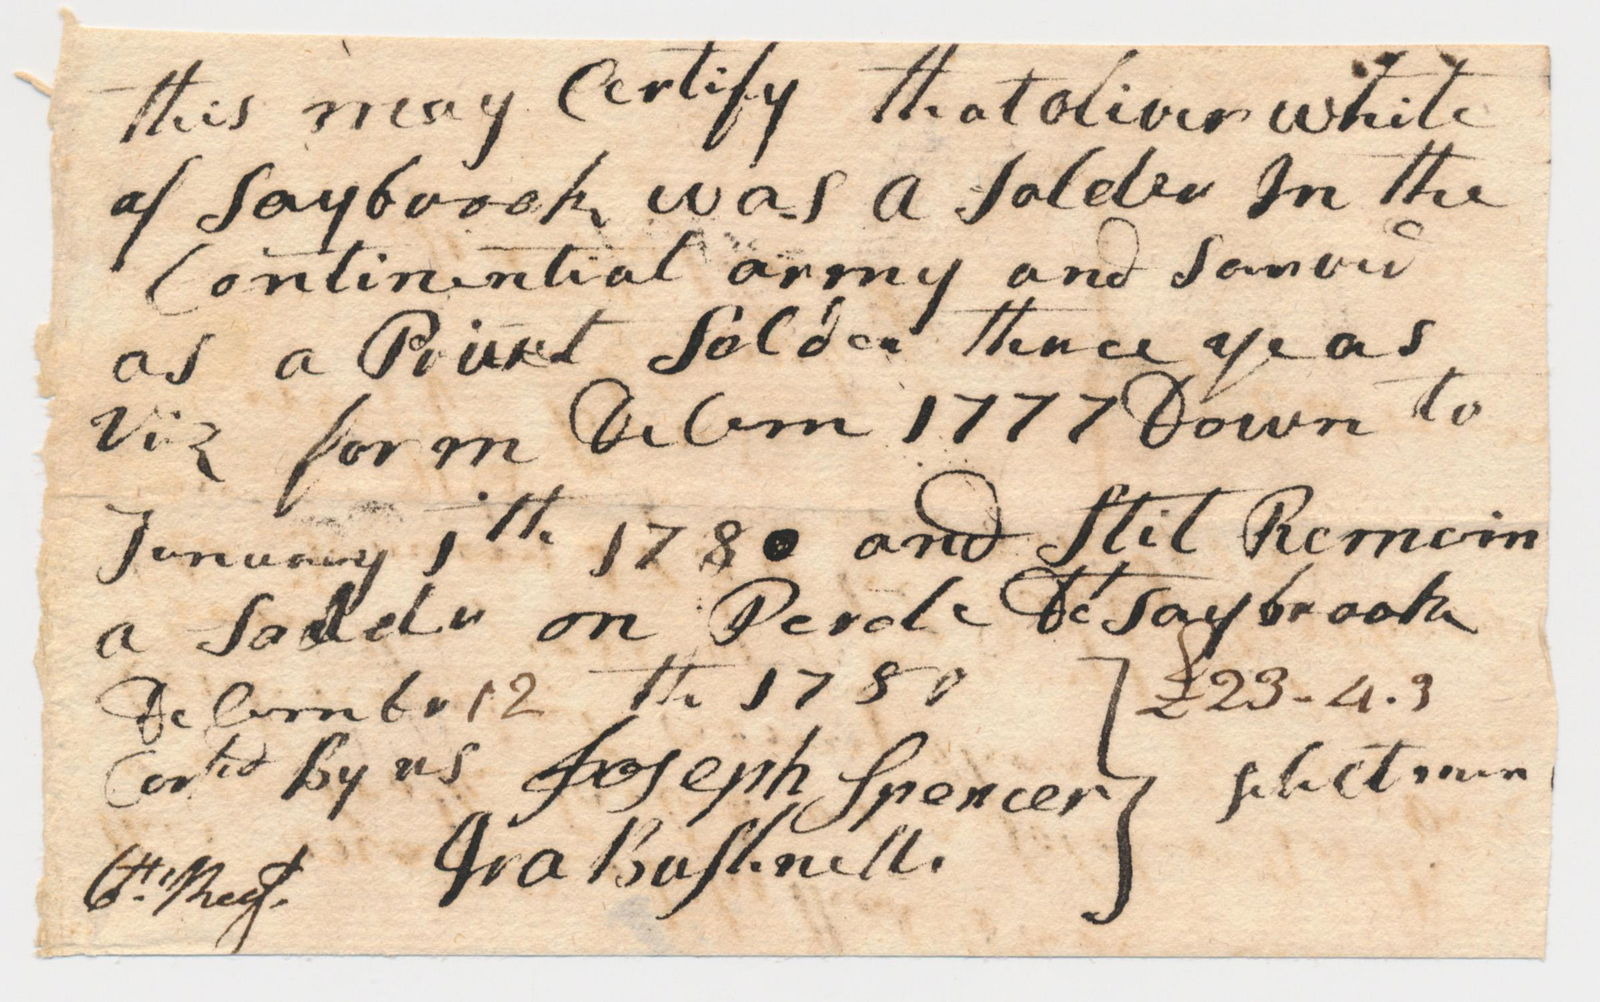 this may Certify that oliver white
of Saybrook was a Solder In the
Continential army and Sarved
as a Privet Solder thrree yeas
Viz form Decem 1777 Down to
January 1th 1780 and Stil Remain
a Soldder on Perole Dt Saybrook
December 12 th 1780 £23-4.3
Cortd By us Joseph Spencer Selectmen
Ira Bushnell.
6th. Regt.